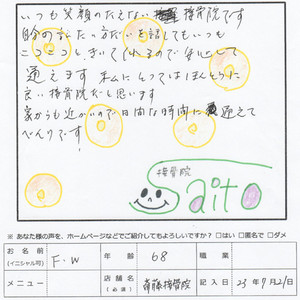 いつも笑顔のたえない接骨院です
自分の言いたい方だいを話してもいつも
ニコニコときいてくれるので安心して
通えます 私にとってはほんとうに
良い接骨院だと思います
家からも近かいので日間な時間に通えて
べんりです
接骨院
Saito
※あなた様の声を、ホームページなどでご紹介してもよろしいですか? □はい □匿名で □ダメ
お名前
(イニシャル可)
F・W
年齢
68
職業
メニュー
店舗名
(必須)
斉藤接骨院
記入日
23年7月21日